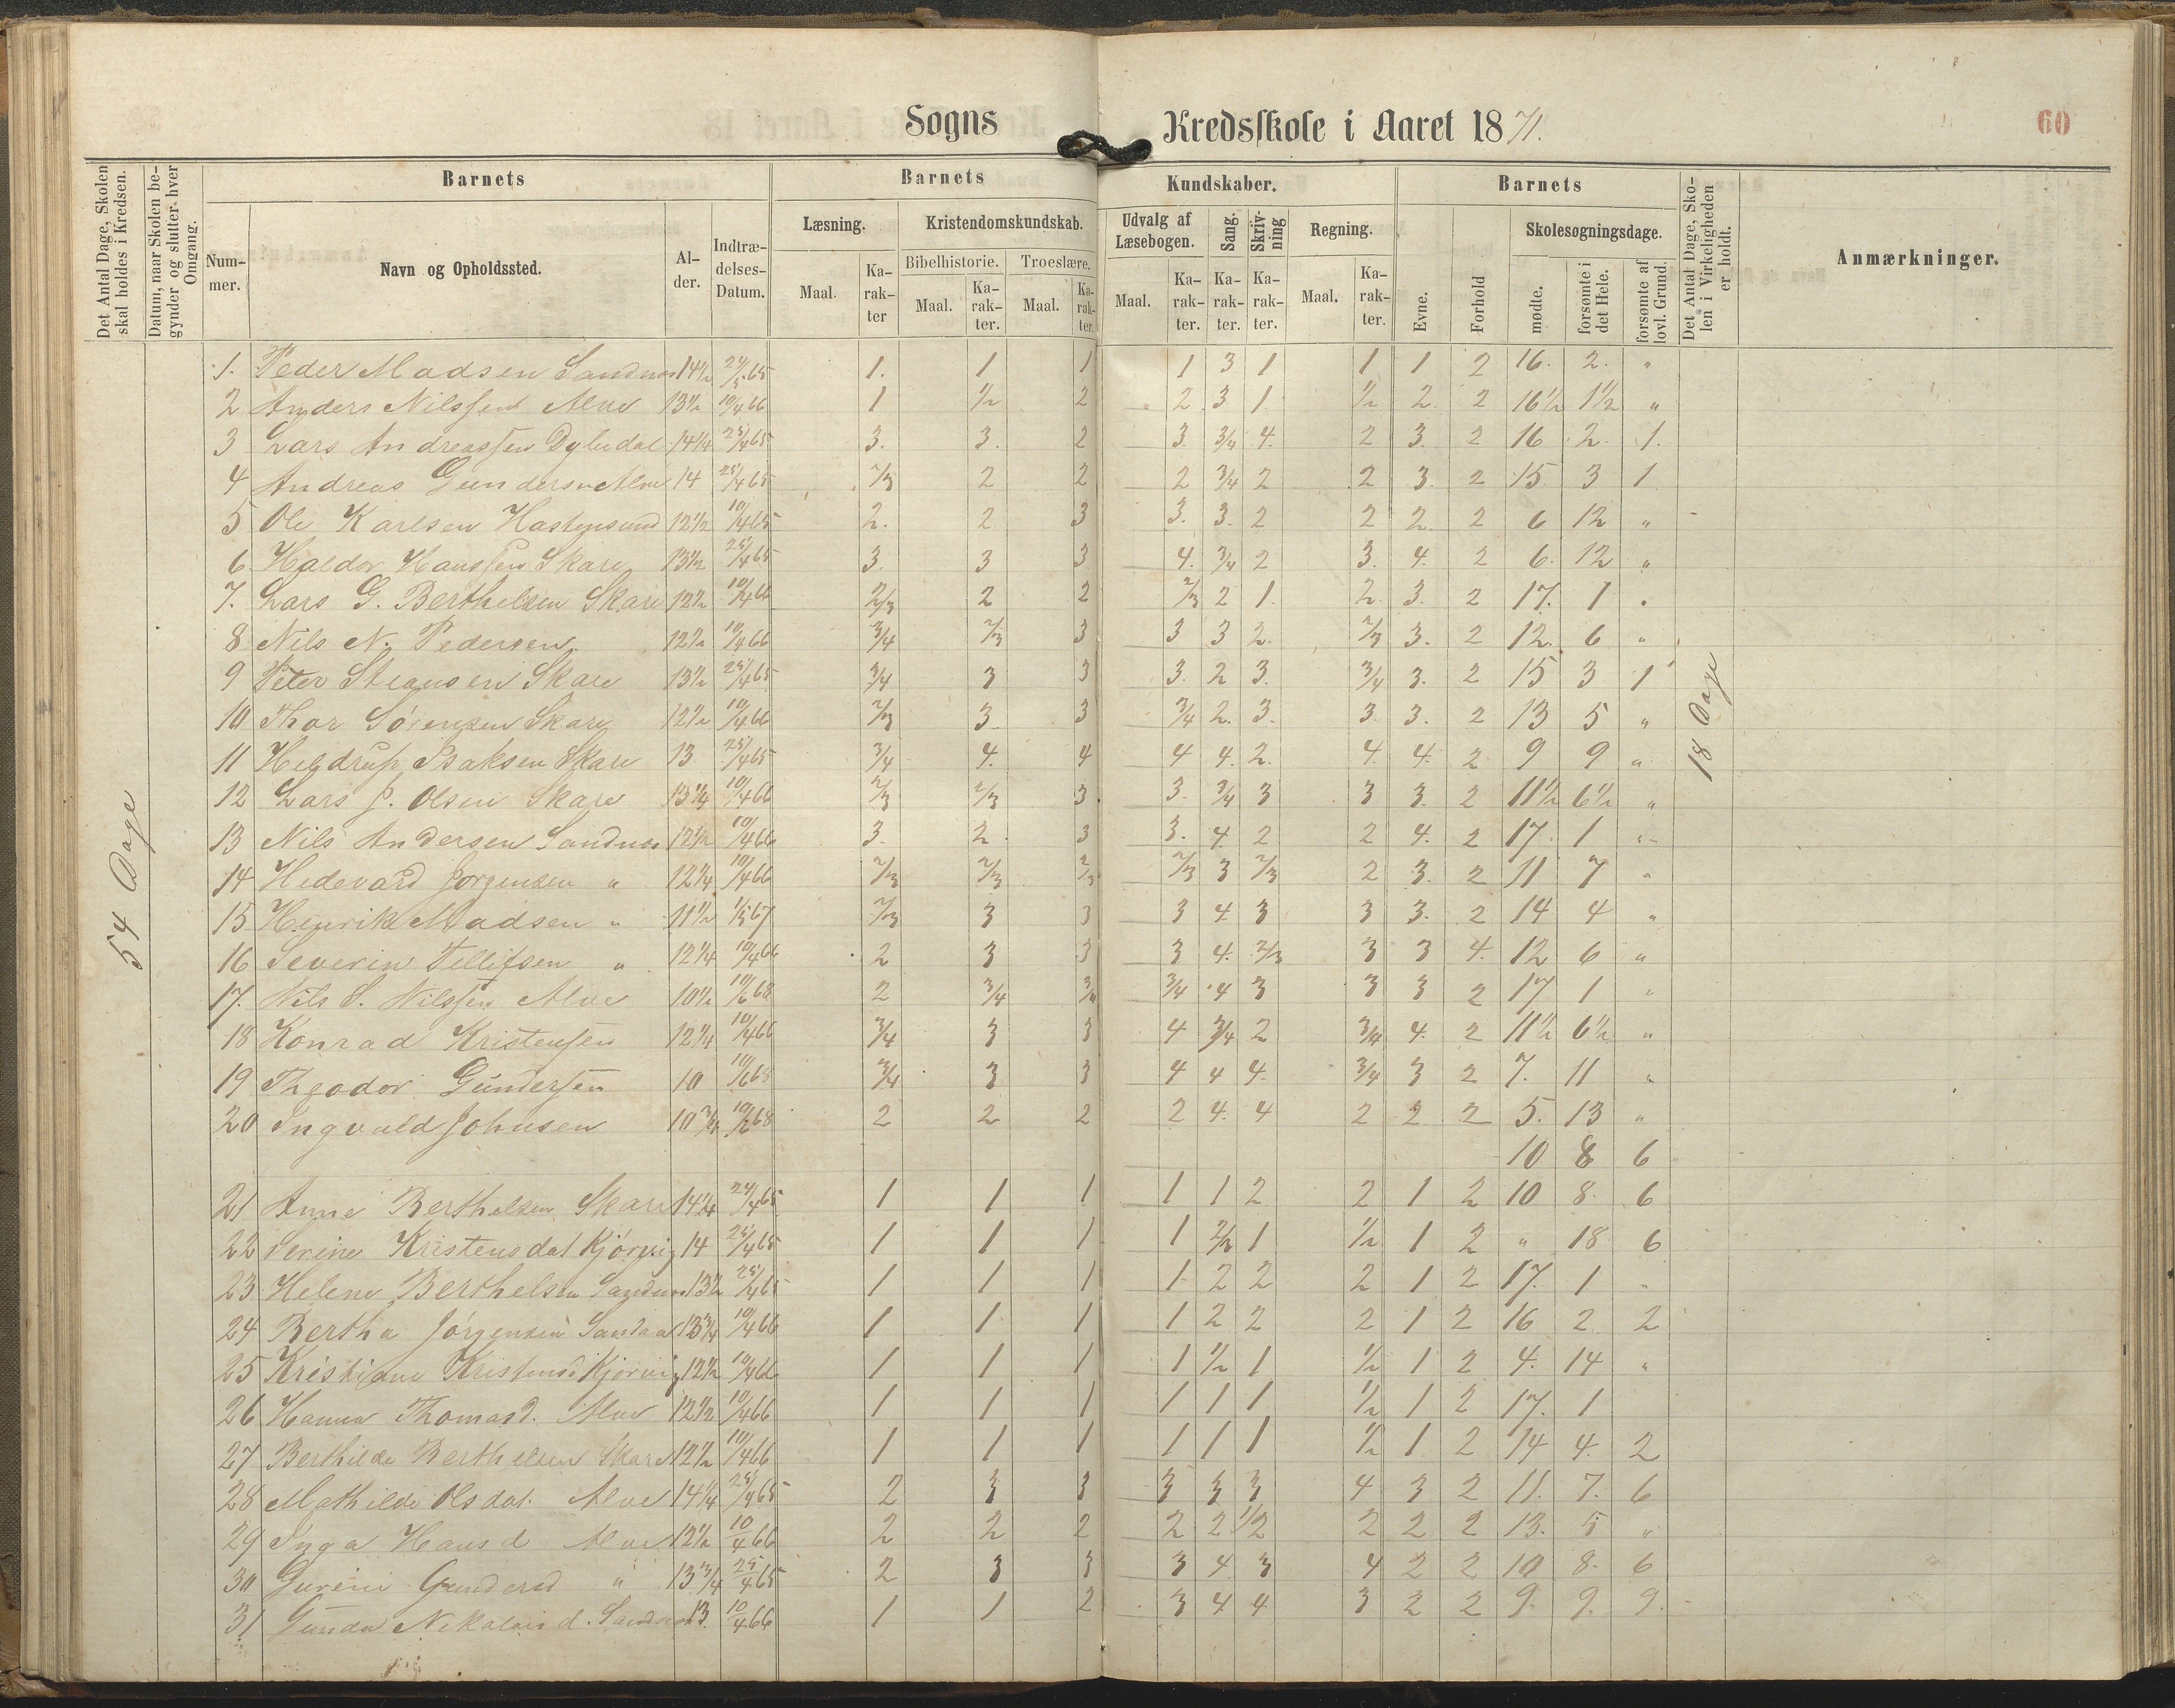 Sogns Kredsskole i Aaret 1871.
60
Det Antal Dage, Skolen skal holdes i Kredsen.
Datum, naar Skolen begynder og slutter hver Omgang.
Barnets
Barnets Kundskaber.
Barnets
Det Antal Dage, Skolen i Virkeligheden er holdt.
Anmærkninger.
Nummer.
Navn og Opholdssted.
Alder.
Indtrædelses-Datum.
Læsning.
Kristendomskundskab.
Udvalg af Læsebogen.
Sang.
Skrivning
Regning.
Evne.
Forhold
Skolesøgningsdage.
Bibelhistorie.
Troeslære.
Maal.
Karakter
Maal.
Karakter.
Maal.
Karakter.
Maal.
Karakter.
Karakter.
Karakter.
Maal.
Karakter.
mødte.
forsømte i det Hele.
forsømte af lovl. Grund.
54 Dage
18 Dage
1. Peder Madsen Sandnes 14½ 24/5 65 1. 1 1 1 3 1 1 1 2 16. 2. "
2 Anders Nilssen Alve 13½ 10/4 66 1 ½ 2 2 3 1 ½ 2 2 16½ 1½ "
3 Lars Andreassen 14¼ 25/4 65 3. 3. 2 3. 3/4 4. 2 3. 2 16 2. 1.
4 Andreas Gundersen Alve 14 25/4 65 2/3 2 2 2 3/4 2 2 3. 2 15 3 1
5 Ole Karlsen Hastensund 12½ 10/4 65 2. 2 3 3. 3. 2 2 2. 2 6 12 "
6. Haldor Hanssen Skare 13½ 25/4 65 3. 3 3 4. 3/4 2 3. 4. 2 6. 12 "
7. Lars G. Berthelsen Skare 12½ 10/4 66 2/3 2 2 2/3 2 1. 2. 3. 2 17. 1 "
8 Nils N. Pedersen 12½ 10/4 66 3/4 2/3 3 3 3 2. 2/3 3. 2 12. 6 "
9 Peter Skare 13½ 25/4 65 3/4 3 3 3. 2 3. 3/4 3. 2 15 3 1
10 Thor Sörensen Skare 12½ 10/4 66 2/3 3. 3 3/4 2. 3. 3. 3. 2 13 5 "
11 Heldrup Isaksen Skare 13 25/4 65 3/4 4. 4 4 4. 2. 4. 4. 2 9 9 "
12 Lars J. Olsen Skare 13¼ 10/4 66 2/3 2/3 3. 3. 3/4 3 3 3. 2 11½ 6½ "
13 Nils Andersen Sandnes 12½ 10/4 66 3. 2. 3 3. 4. 2 2 4. 2 17. 1 "
14 Hedevard Jörgensen " 12¼ 10/4 66 2/3 2/3 2/3 2/3 3 2/3 2 3. 2 11 7 "
15 Henrik Madsen " 11½ 1/5 67 2/3 3 3 3 4 3 3 3. 2 14 4 "
16 Severin Tellifsen " 12¼ 10/4 66 2 3 3 3 4. 2/3 3 3 4. 12 6 "
17. Nils S. Nilssen Alve 10½ 10/6 68 2 3/4 3/4 3/4 4 3 3 3 2 17 1 "
18 Konrad Kristensen 12¼ 10/4 66 3/4 3 3 4 3/4 2 3/4 4. 2 11½ 6½ "
19 Theodor Gundersen 10 10/6 68 3/4 3 3 4 4 4. 3/4 3 2 7. 11 "
20 Ingvald Johnsen 10¾ 10/6 68 2 2 2 2 4. 4 2 2 2 5. 13 "
10 8 6
21 Anne Berthelsen Skare 14¼ 24/4 65 1 1 1 1 1 2 2 1 2 10 8 6
22 Serine Kristensdat Kjörvig 14 25/4 65 1 1 1 1 2/3 1 ½ 1 2 " 18 6
23 Helene Berthelsen Sandnes 13½ 25/4 65 1 1 1 1 2 2 2 1 2 17. 1 "
24 Bertha Jörgensen 13¾ 10/4 66 1 1 1 1 2 2 2 1 2 16 2 2
25 Kristiane Kristensd Kjörvig 12½ 10/4 66 1 1 1 1 ½ 1 ½ 1 2 4. 14 "
26 Hanna Thomasd. Alve 12½ 10/4 66 1 1 1 1 1 1 ½ 1 2 17. 1
27 Berthilde Berthelsen Skare 12½ 10/4 66 1 1 1 1 1 1 ½ 1 2 14 4. 2
28 Mathilde Olsdat. Alve 14¼ 25/4 65 2 3 3 3 3 3 4 3 2 11. 7. 6
29 Inga Hansd Alve 12½ 10/4 66 2 2 2 2 2 1/2 2 2 2 13. 5 "
30 Gurine Gundersd " 13¾ 25/4 65 2 3 3 3 4 3 4 2 2 10 8. 6
31 Gunda Nikolaisd. Sandnes 13. 10/4 66 1 1 2 3 4 4 3 2 2 9. 9. 9.